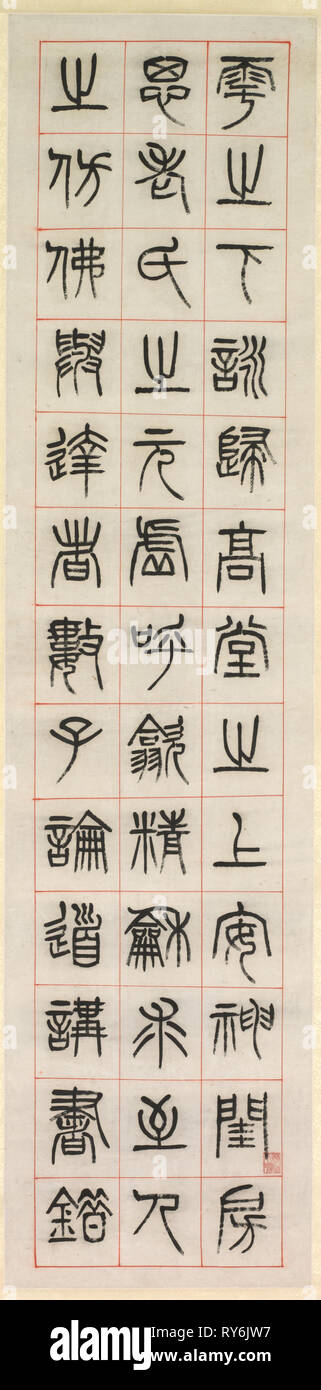 雩之下詠歸高堂之上安神閨房
思老氏之元虛呼歙精龢求至人
之仿佛與達者數子論道講書錯
alamy
Image ID: RY6JW7
www.alamy.com